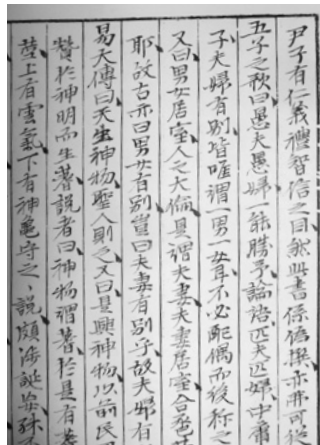 尹子有仁義禮智信之目然此書係偽撰亦不可從
五子之歌曰愚夫愚婦一能勝予論語匹夫匹婦中庸
子夫婦有別皆唯謂一男一女耳不必配偶而後称之
又曰男女居室人之大倫是謂夫妻夫妻居室合
耶故古亦曰男女有別豈曰夫妻有別乎故夫婦有
易大傳曰天生神物聖人則之又曰是興神物以前民
贊於神明而生蓍説者曰神物謂蓍於是有
上有雲氣下有神龜守之説頗渉誕妄殊